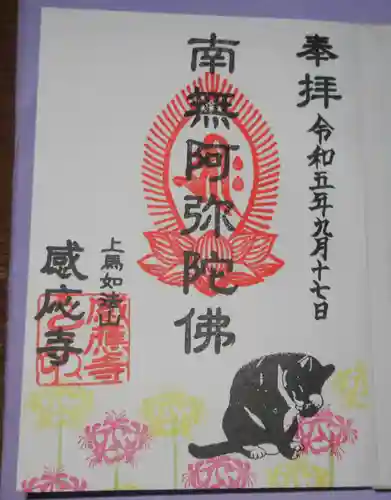 奉拝
令和五年九月十七日
南無阿弥陀佛
上馬如法山
感應寺
感應寺